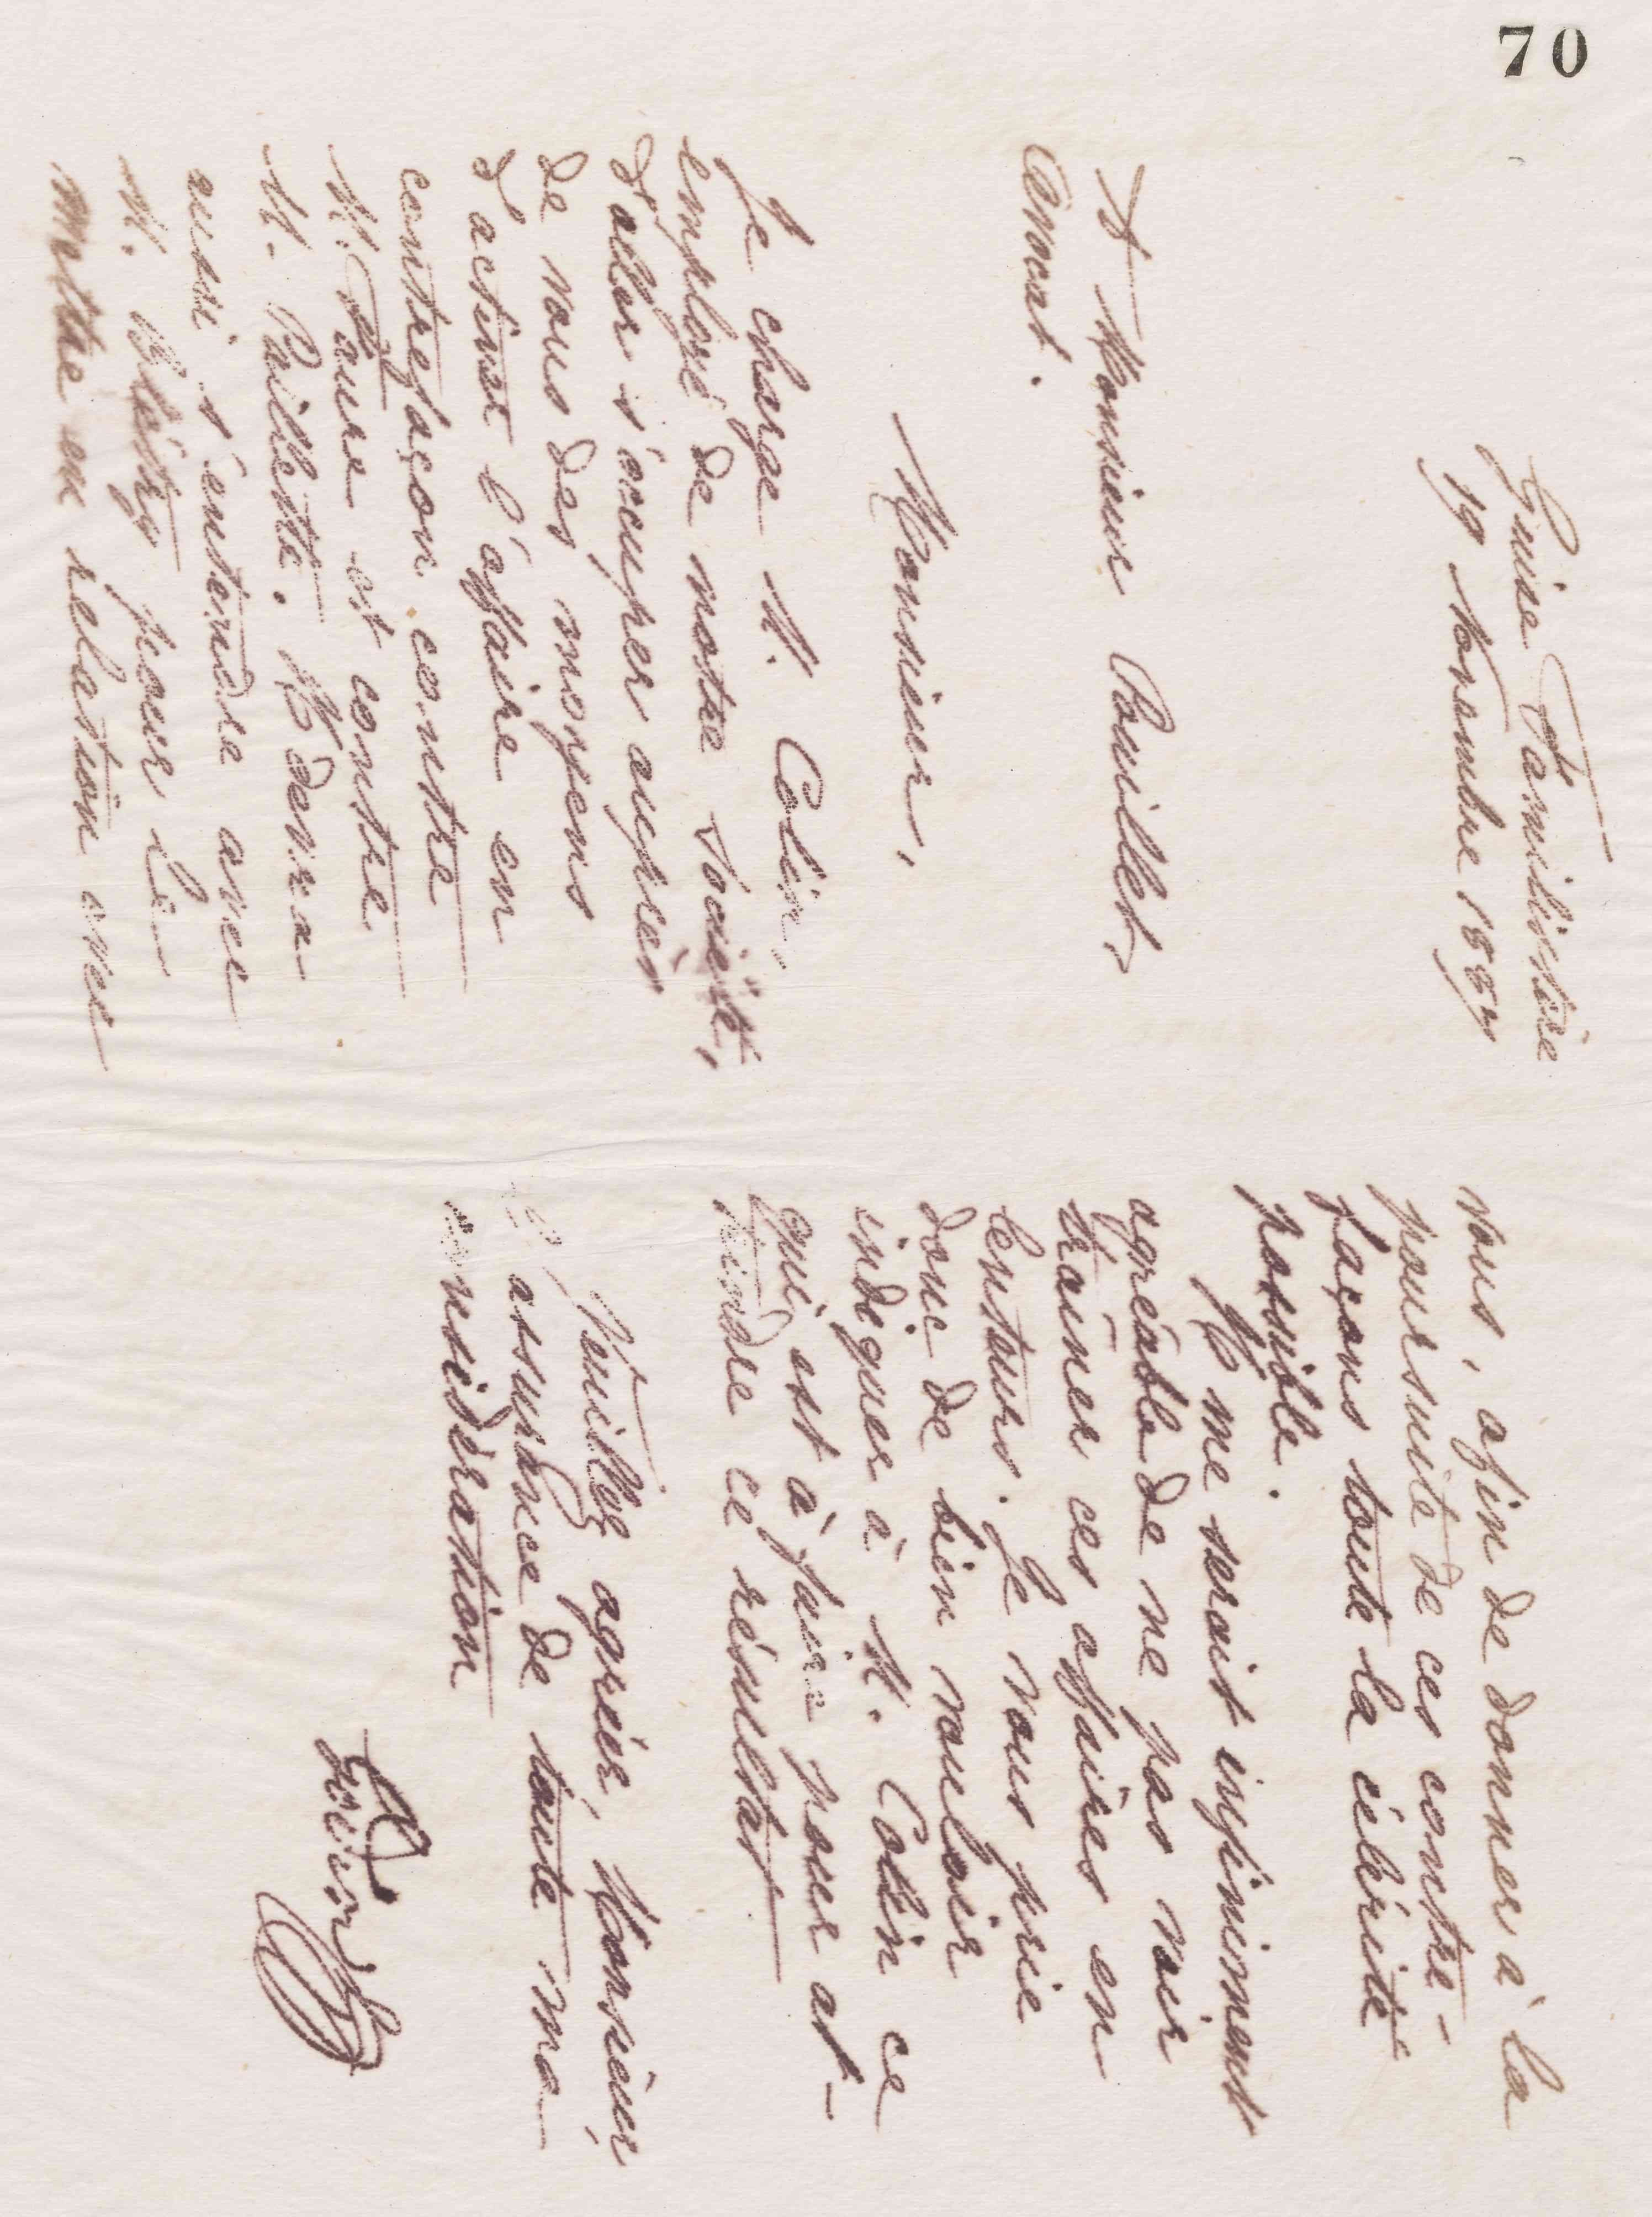 70
Guise Familistère
19 Novembre 1884
A Monsieur Pouillet,
avocat.
Monsieur,
Je charge M. Colin,
employé de notre Société,
d'aller s'occuper auprès
de vous des moyens
d'activer l'affaire en
contrefaçon contre
M. Faure et contre
M. Paillette. Il devra
aussi s'entendre avec
M. pour le
mettre en relation avec
vous, afin de donner à la
poursuite de ces contre-
façons toute la célérité
possible.
Il me serait infiniment
agréable de ne pas voir
traîner ces affaires en
lenteurs. Je vous prie
donc de bien vouloir
indiquer à M. Colin ce
qui est à faire pour at-
teindre ce résultat
Veuillez agréer, Monsieur,
l'assurance de toute ma
considération
Godin